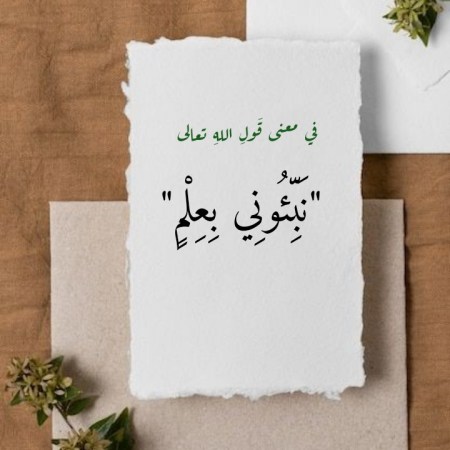 في معنى قَولِ اللهِ تعالى
"نَبِّئُونِي بِعِلْمٍ"